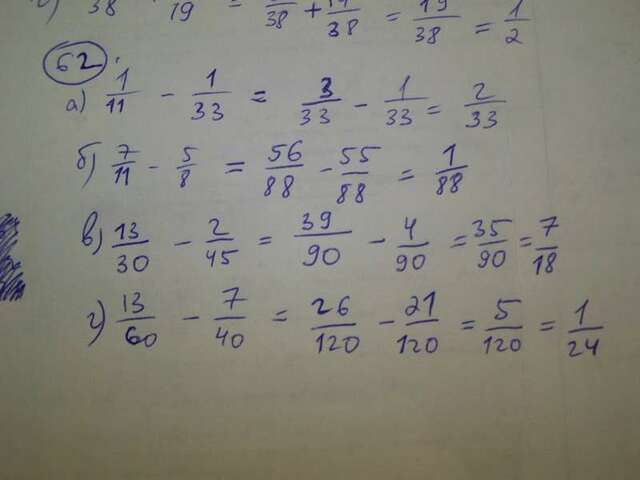 38 19 = /38 + /38 = 19/38 = 1/2
62.
а) 1/11 - 1/33 = 3/33 - 1/33 = 2/33
б) 7/11 - 5/8 = 56/88 - 55/88 = 1/88
в) 13/30 - 2/45 = 39/90 - 4/90 = 35/90 = 7/18
г) 13/60 - 7/40 = 26/120 - 21/120 = 5/120 = 1/24